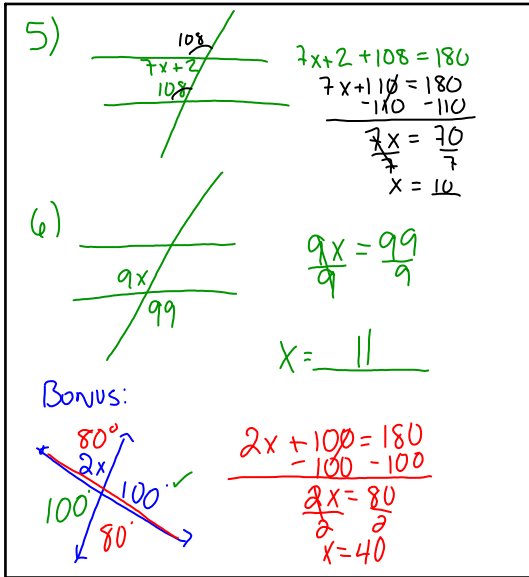 5)
108
7x+2
108
7x+2 +108 = 180
7x+110 = 180
-110 -110
7x = 70
7 7
x = 10
6)
9x
99
9x = 99
9 9
x = 11
Bonus:
80°
2x
100°
100°
80°
2x + 100 = 180
- 100 - 100
2x = 80
2 2
x = 40